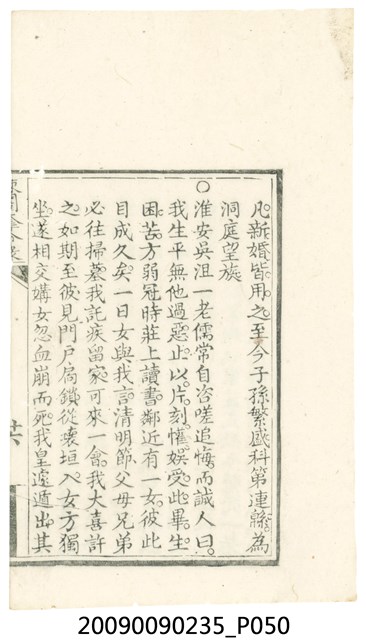 凡新婚皆用之至今子孫繁盛科第連緜為
洞庭望族
○淮安吳沮一老儒常自咨嗟追悔而誡人曰
我生平無他過惡止以片刻懽娛受此畢生
困苦方弱冠時莊上讀書鄰近有一女彼此
目成久矣一日女與我言清明節父母兄弟
必往掃墓我託疾留家可來一會我大喜許
之如期至彼見門戶扃鎖從壞垣入女方獨
坐遂相交媾女忽血崩而死我皇遽遁出其
廿六
20090090235_P050